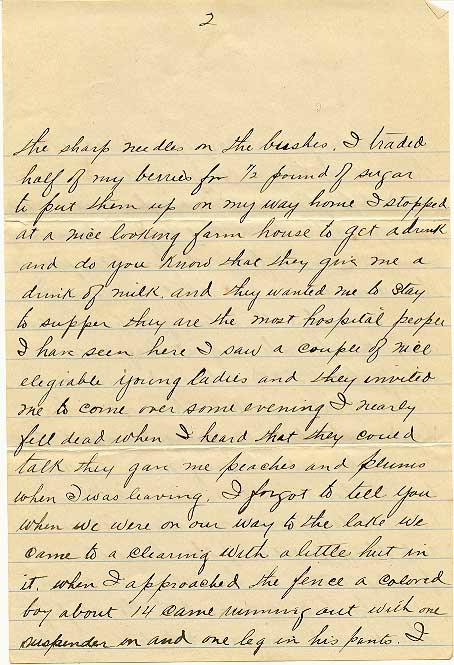 2
the sharp needles on the bushes. I traded
half of my berries for 1/2 pound of sugar
to put them up on my way home I stopped
at a nice looking farm house to get a drink
and do you know that they give me a
drink of milk. and they wanted me to stay
to supper they are the most hospital peoper
I have seen here I saw a couple of nice
elegiable young ladies and they invited
me to come over some evening I nearly
fell dead when I heard that they could
talk they gave me peaches and plums
when I was leaving. I forgot to tell you
when we were on our way to the lake we
came to a clearing with a little hut in
it. when I approached the fence a colored
boy about 14 came running out with one
suspender on and one leg in his pants. I